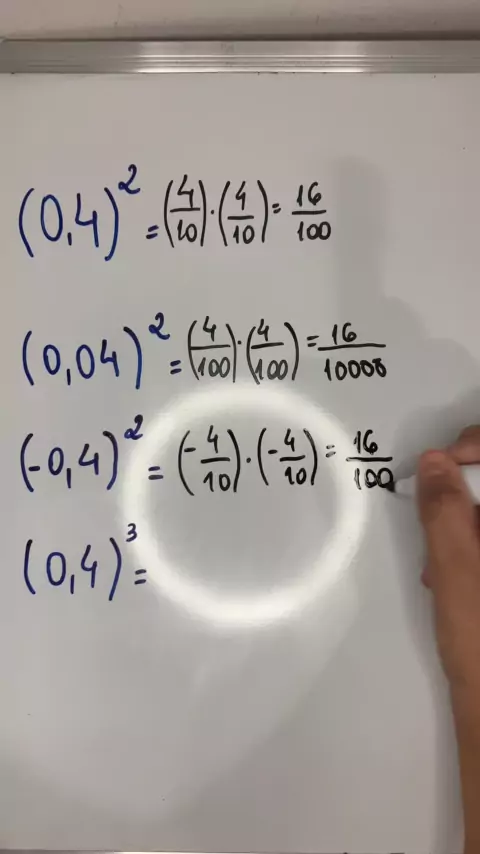 (0,4)² = (4/10)·(4/10) = 16/100
(0,04)² = (4/100)·(4/100) = 16/10000
(-0,4)² = (-4/10)·(-4/10) = 16/100
(0,4)³ =